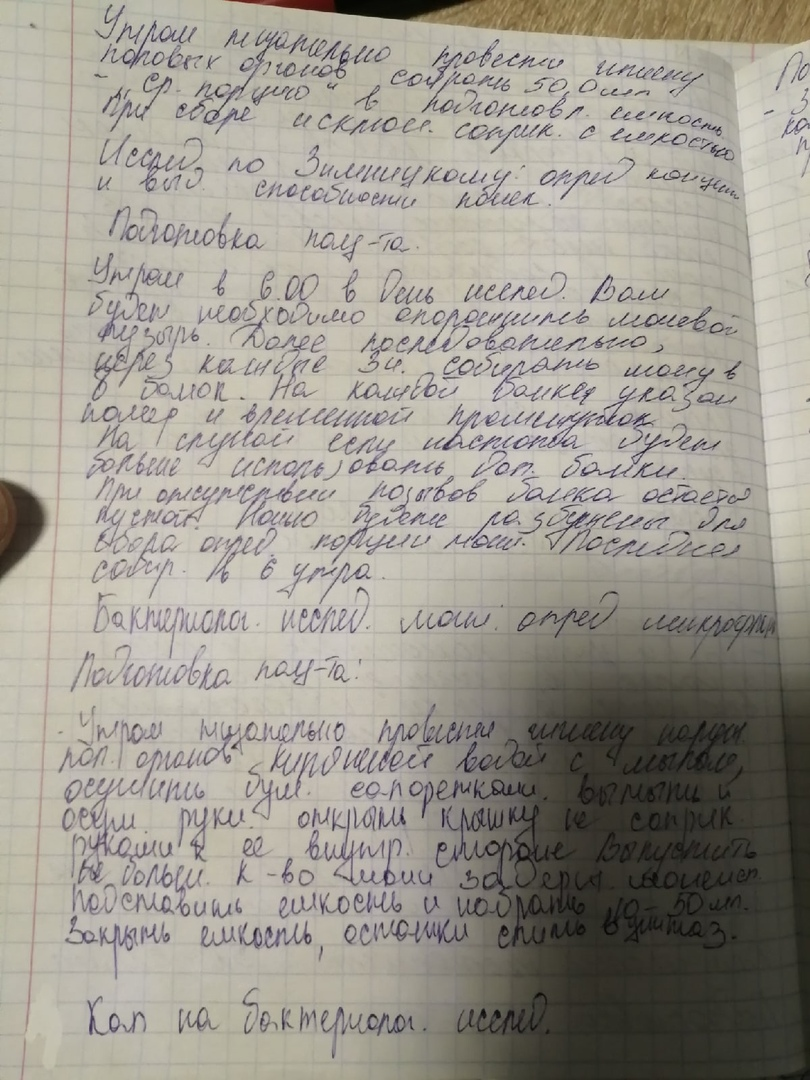 Утром тщательно провести гигиену
половых органов собрать 50,0 мл
- „ср. порцию“ в подготовл. емкость.
При сборе исключ. соприк. с емкостью
Исслед по Зимницкому: опред концен
и выд. способности почек.
Подготовка пац-та.
Утром в 6.00 в день исслед. Вам
будет необходимо опорожнить мочевой
пузырь. Далее последовательно,
через каждые 3ч. собирать мочу в
8 банок. На каждой банке указан
номер и временной промежуток
На случай если
больше использовать доп. банки
При отсутствии позывов банка остается
пустой. Ночью будете разбужены для
сбора опред. порции мочи. Последняя
собир. в 6 утра.
Бактериолог. исслед. мочи: опред микрофлоры
Подготовка пац-та:
- Утром тщательно провести гигиену наруж
пол. органов кипяченой водой с мылом,
осушить бум. салфетками. вымыть и
осуш. руки. открыть крышку не соприк.
руками к ее внутр. стороне Выпустить
небольш. к-во мочи
подставить емкость и набрать 10-50 мл.
Закрыть емкость, остатки слить в унитаз.
Кал на бактериолог. исслед.
По